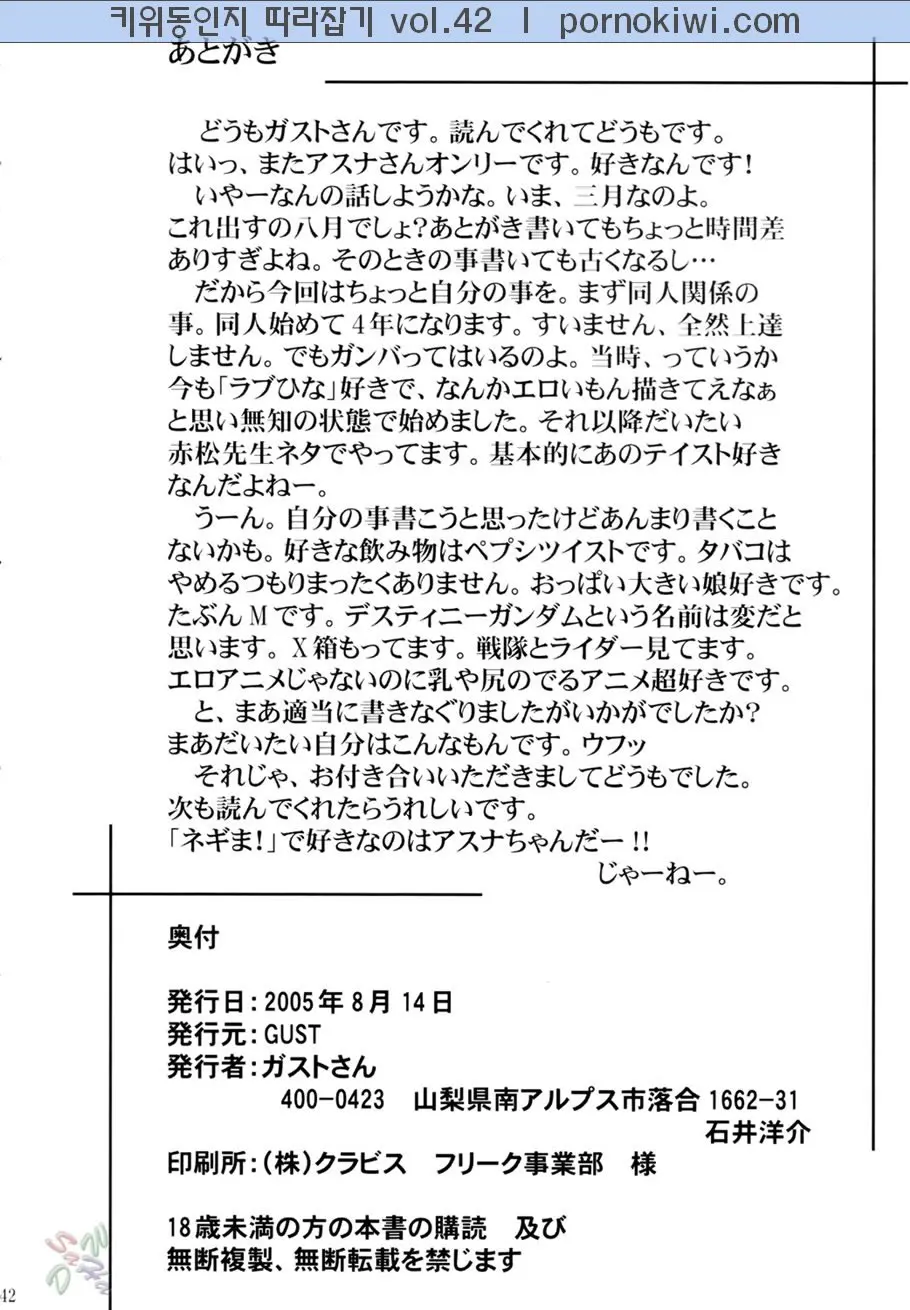 키위동인지 따라잡기 vol.42 | pornokiwi.com
あとがき
どうもガストさんです。読んでくれてどうもです。
はいっ、またアスナさんオンリーです。好きなんです！
いやーなんの話しようかな。いま、三月なのよ。
これ出すの八月でしょ？あとがき書いてもちょっと時間差
ありすぎよね。そのときの事書いても古くなるし…
だから今回はちょっと自分の事を。まず同人関係の
事。同人始めて4年になります。すいません、全然上達
しません。でもガンバってはいるのよ。当時、っていうか
今も「ラブひな」好きで、なんかエロいもん描きてえなぁ
と思い無知の状態で始めました。それ以降だいたい
赤松先生ネタでやってます。基本的にあのテイスト好き
なんだよねー。
うーん。自分の事書こうと思ったけどあんまり書くこと
ないかも。好きな飲み物はペプシツイストです。タバコは
やめるつもりまったくありません。おっぱい大きい娘好きです。
たぶんMです。デスティニーガンダムという名前は変だと
思います。X箱もってます。戦隊とライダー見てます。
エロアニメじゃないのに乳や尻のでるアニメ超好きです。
と、まあ適当に書きなぐりましたがいかがでしたか？
まあだいたい自分はこんなもんです。ウフッ
それじゃ、お付き合いいただきましてどうもでした。
次も読んでくれたらうれしいです。
「ネギま！」で好きなのはアスナちゃんだー！！
じゃーねー。
奥付
発行日：2005年8月14日
発行元：GUST
発行者：ガストさん
400-0423　山梨県南アルプス市落合1662-31
石井洋介
印刷所：（株）クラビス　フリーク事業部　様
18歳未満の方の本書の購読　及び
無断複製、無断転載を禁じます
42